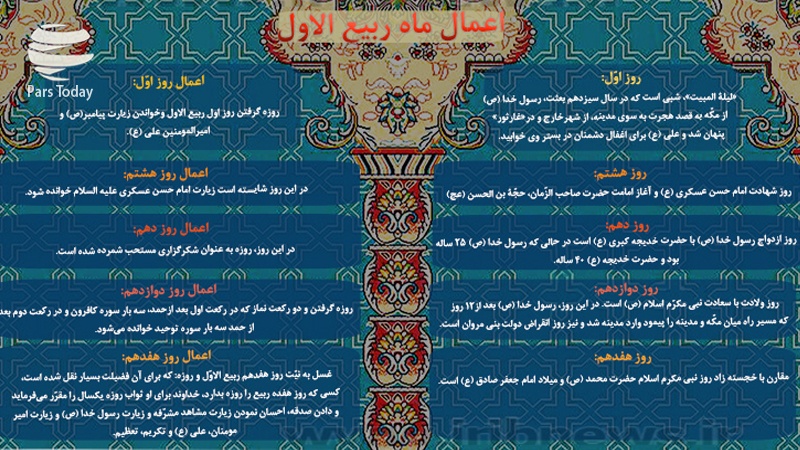 اعمال ماه ربیع الاول
Pars Today
روز اوّل:
«لیلة المبیت»، شبی است که در سال سیزدهم بعثت، رسول خدا (ص)
از مکّه به قصد هجرت به سوی مدینه، از شهر خارج و در «غار ثور»
پنهان شد و علی (ع) برای اغفال دشمنان در بستر وی خوابید.
اعمال روز اوّل:
روزه گرفتن روز اول ربیع الاول وخواندن زیارت پیامبر(ص) و
امیرالمومنین علی (ع).
روز هشتم:
روز شهادت امام حسن عسکری (ع) و آغاز امامت حضرت صاحب الزّمان، حجّة بن الحسن (عج)
اعمال روز هشتم:
در این روز شایسته است زیارت امام حسن عسکری علیه السلام خوانده شود.
روز دهم:
روز ازدواج رسول خدا (ص) با حضرت خدیجه کبری (ع) است در حالی که رسول خدا (ص) ۲۵ ساله
بود و حضرت خدیجه (ع) ۴۰ ساله.
اعمال روز دهم:
در این روز، روزه به عنوان شکرگزاری مستحب شمرده شده است.
روز دوازدهم:
روز ولادت با سعادت نبی مکرّم اسلام (ص) است. در این روز، رسول خدا (ص) بعد از ۱۲ روز
که مسیر راه میان مکّه و مدینه را پیمود وارد مدینه شد و نیز روز انقراض دولت بنی مروان است.
اعمال روز دوازدهم:
روزه گرفتن و دو رکعت نماز که در رکعت اول بعد ازحمد، سه بار سوره کافرون و در رکعت دوم بعد
از حمد سه بار سوره توحید خوانده می‌شود.
روز هفدهم:
مقارن با خجسته زاد روز نبی مکرم اسلام حضرت محمد (ص) و میلاد امام جعفر صادق (ع) است.
اعمال روز هفدهم:
غسل به نیّت روز هفدهم ربیع الاوّل و روزه: که برای آن فضیلت بسیار نقل شده است،
کسی که روز هفده ربیع را روزه بدارد، خداوند برای او ثواب روزه یکسال را مقرّر می‌فرماید
و دادن صدقه، احسان نمودن زیارت مشاهد مشرّفه و زیارت رسول خدا (ص) و زیارت امیر
مومنان، علی (ع) و تکریم، تعظیم.